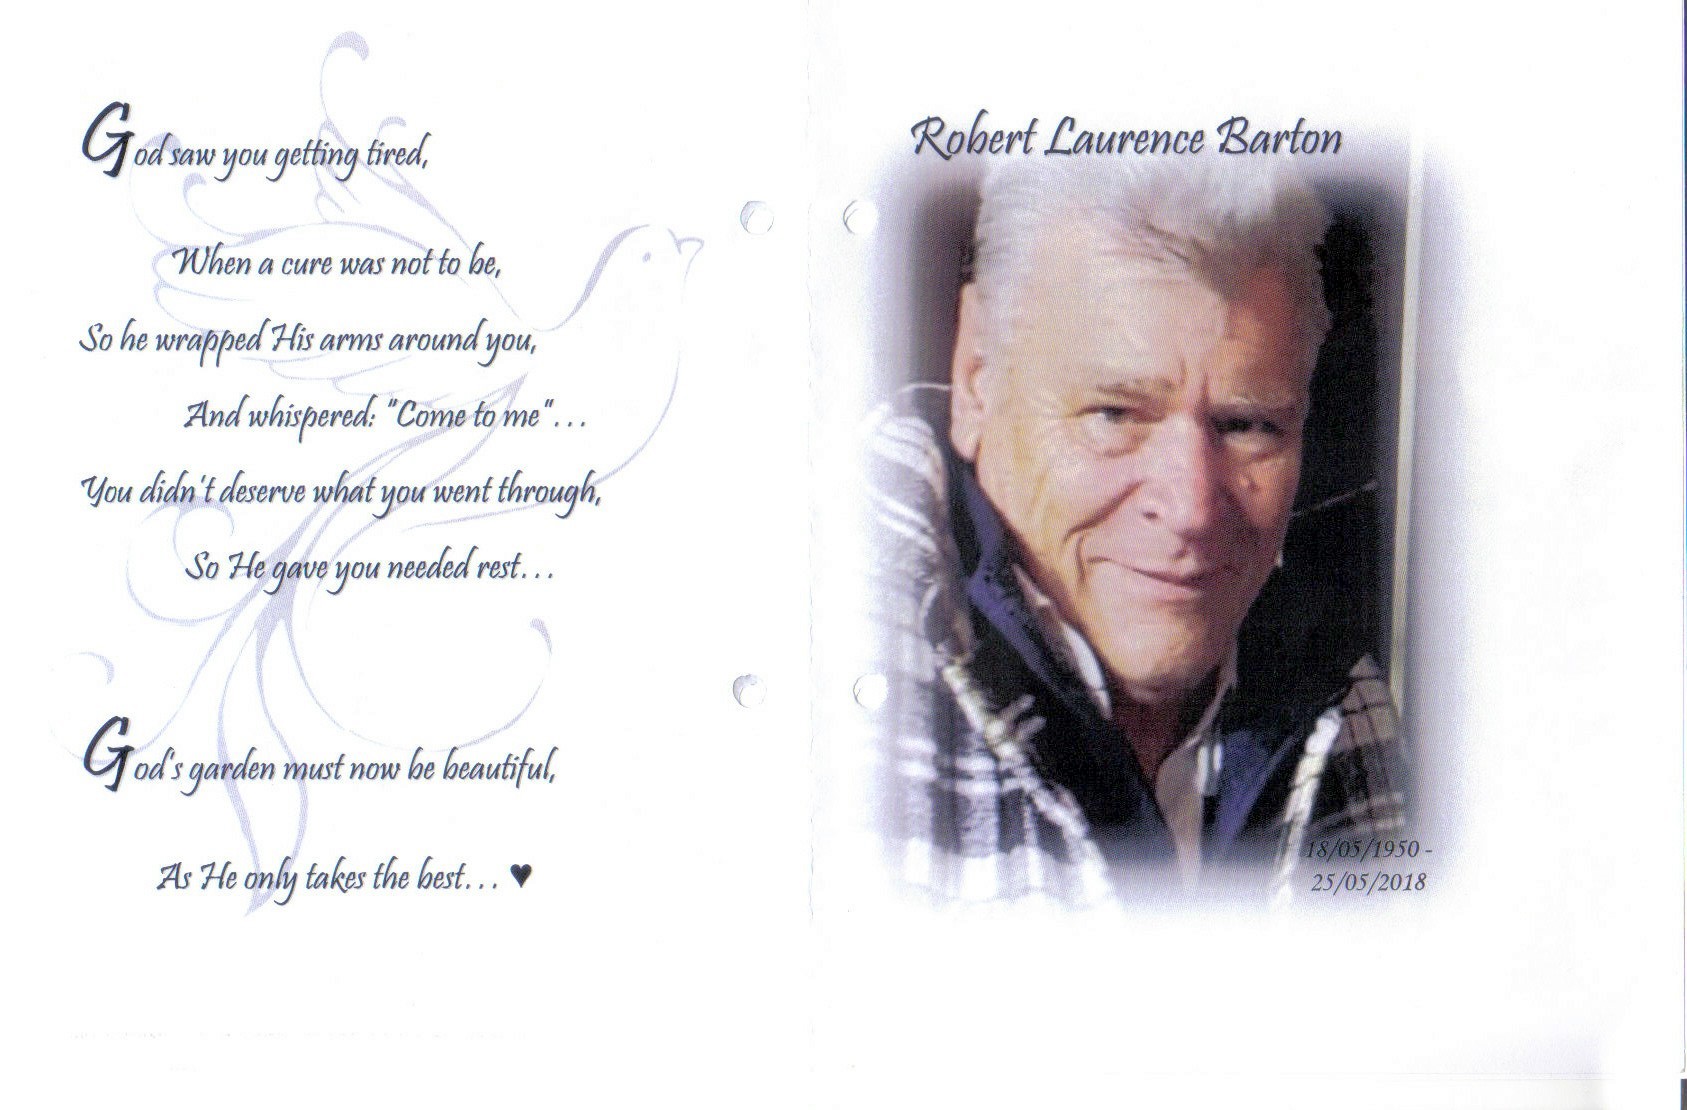 God saw you getting tired,
When a cure was not to be,
So he wrapped His arms around you,
And whispered: "Come to me"...
You didn't deserve what you went through,
So He gave you needed rest...
God's garden must now be beautiful,
As He only takes the best... ♥
Robert Laurence Barton
18/05/1950 -
25/05/2018